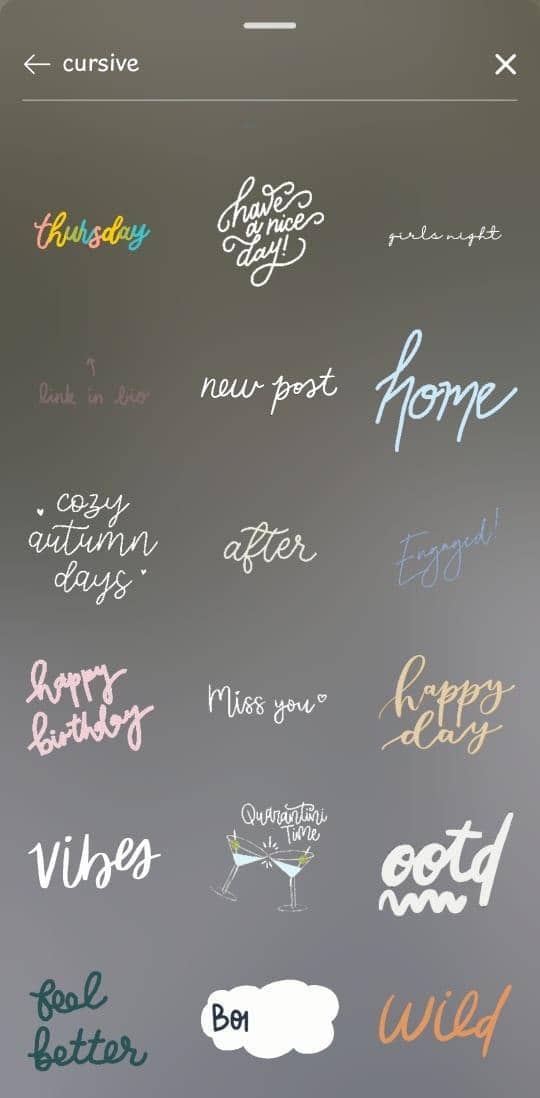 cursive
thursday
have
a nice
day!
girls night
link in bio
new post
home
cozy
autumn
days
after
Engaged!
happy
birthday
Miss you
happy
day
vibes
Quarantini
Time
ootd
feel
better
Bon
wild